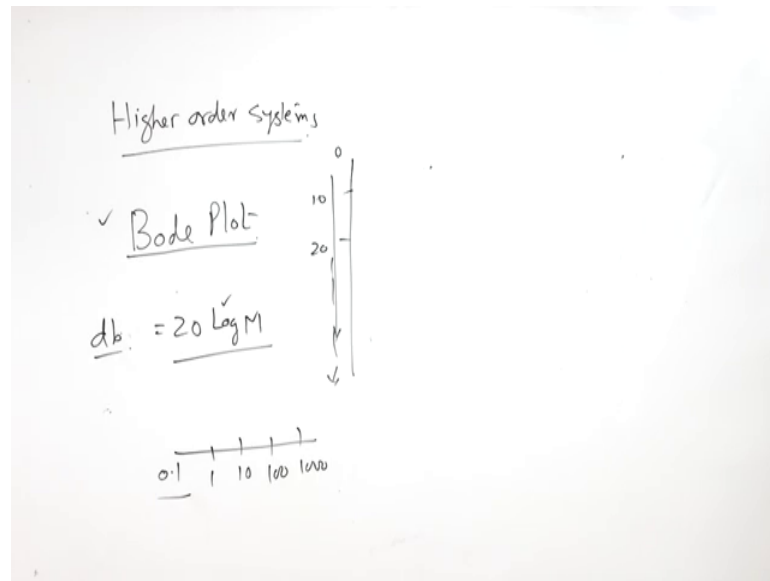 Higher order systems
Bode Plot
db = 20 Log M
0
10
20
0.1 1 10 100 1000